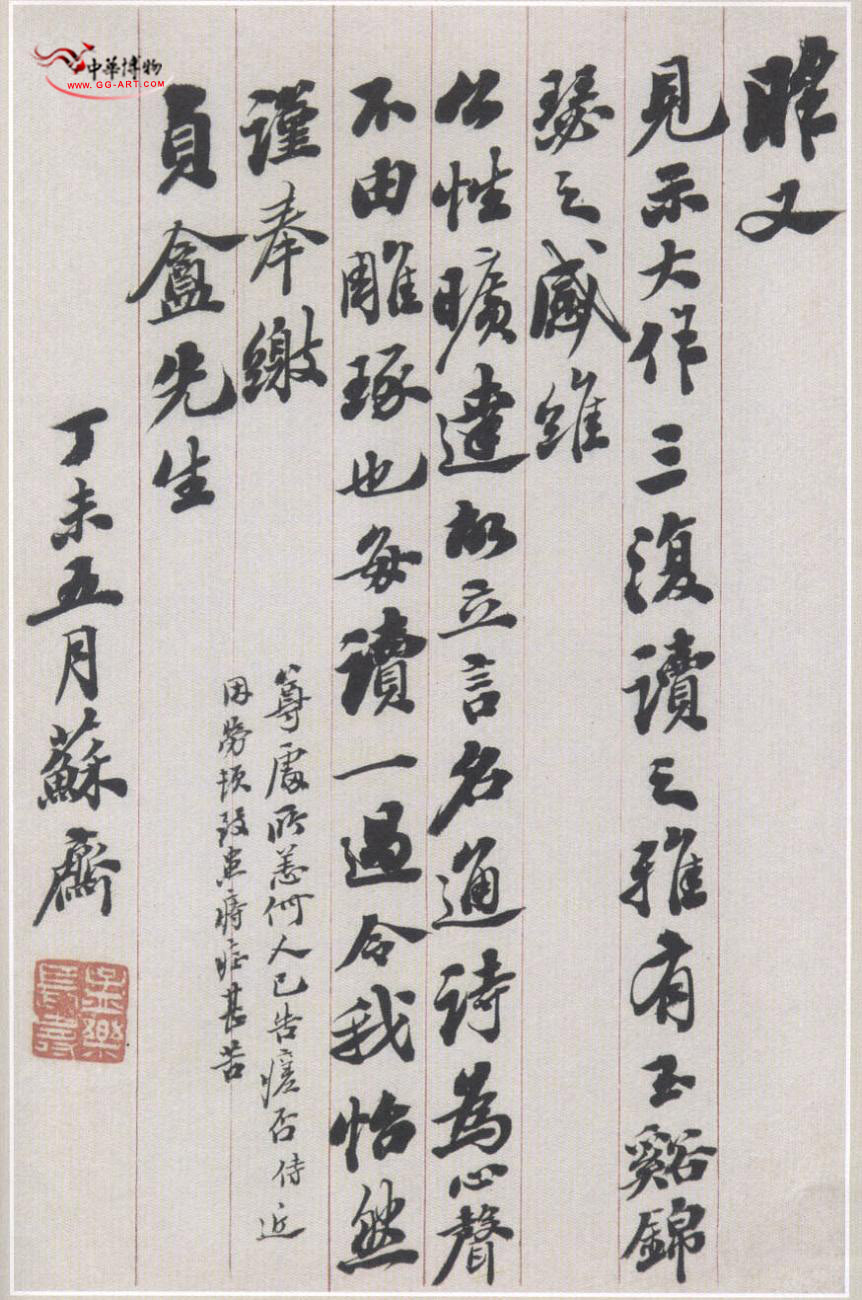 昨又
見示大作三復讀之雅有玉谿錦
瑟之感維
公性曠達故立言名通詩為心聲
不由雕琢也每讀一過令我怡然
謹奉繳
貞盦先生
尊處所恙何人已告瘥否侍近
因勞頓致患痔症甚苦
丁未五月蘇齋
中華博物
WWW.GG-ART.COM